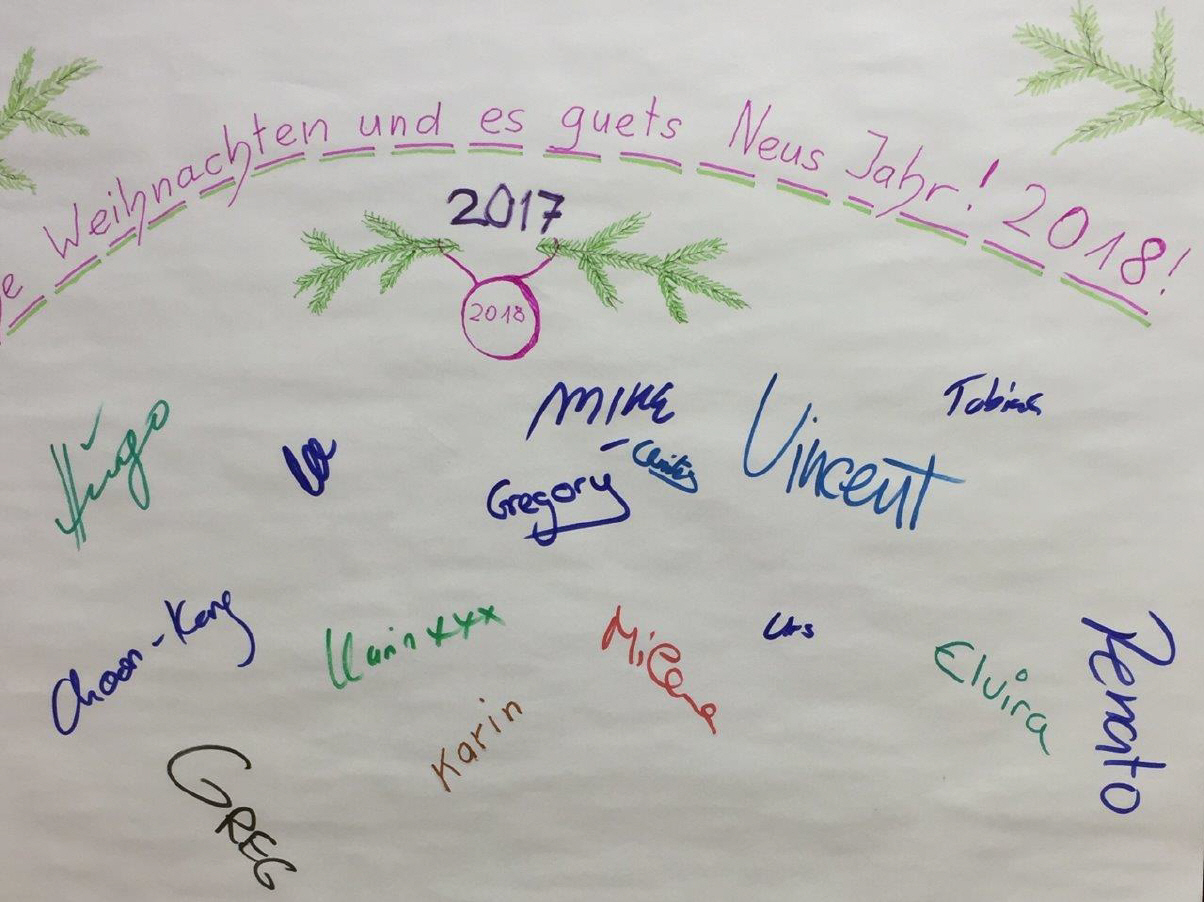 e Weihnachten und es guets Neus Jahr! 2018!
2017
2018
Hugo
MIKE
Vincent
Tobias
Gregory
Choon-Keng
xxx
Milena
Urs
Elvira
Renato
Karin
GREG